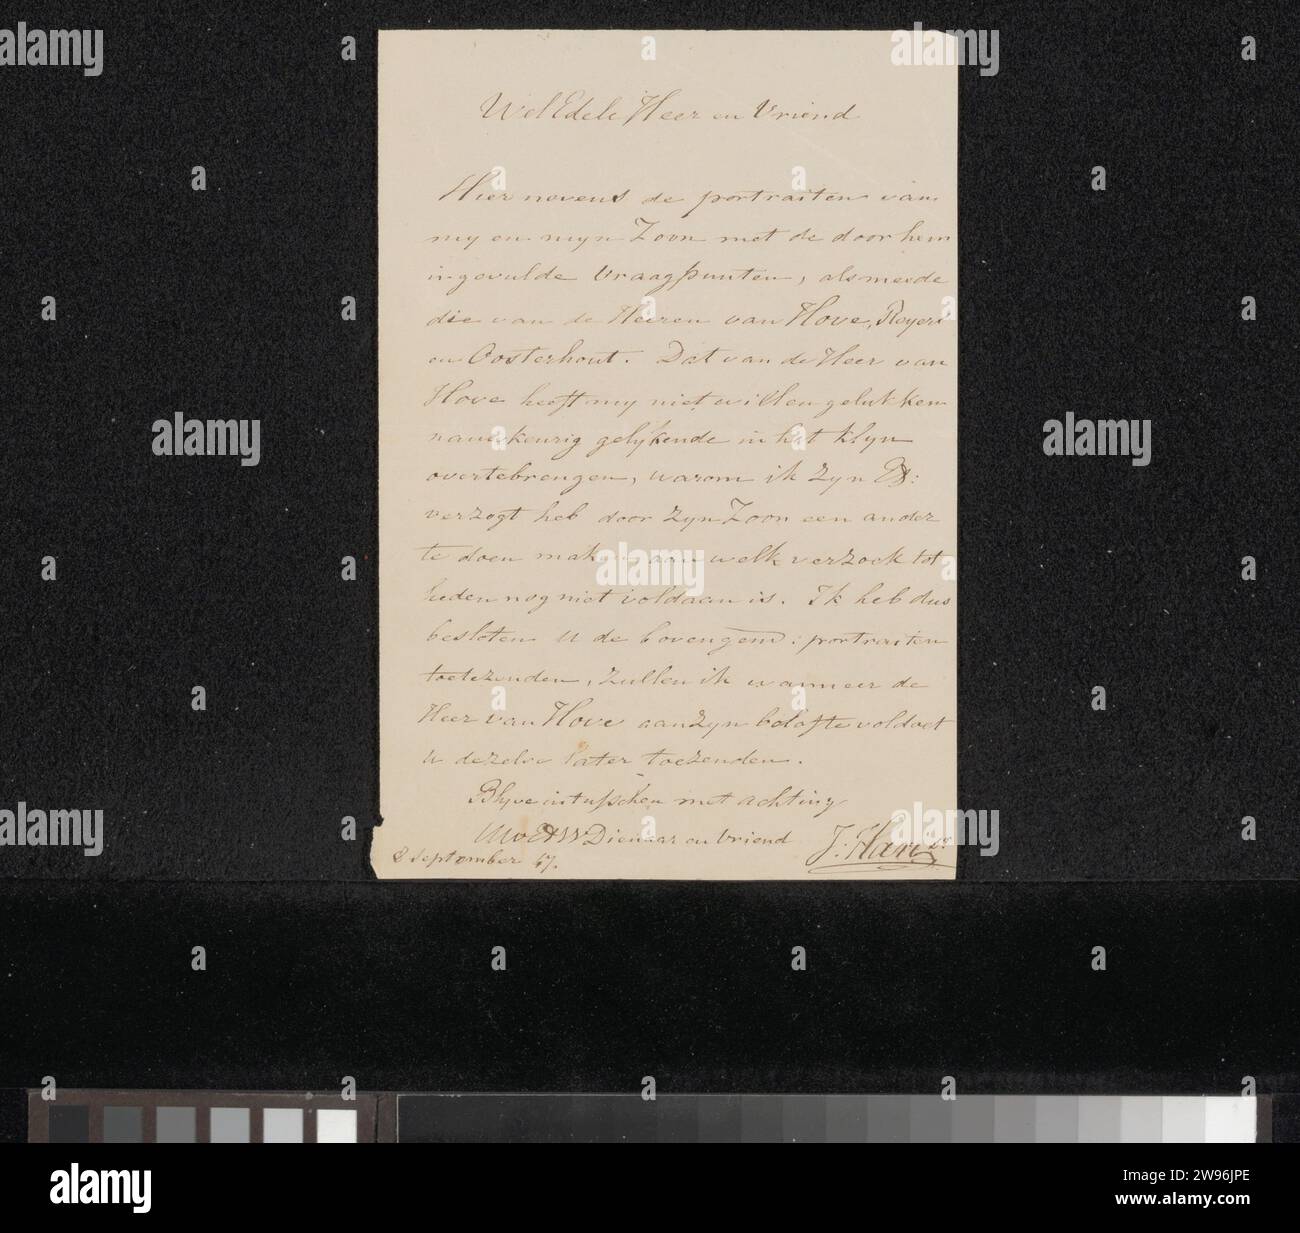 WelEdele Heer en Vriend
Hier nevens de portraiten van
my en myn Zoon met de door hem
ingevulde Vraagpunten, alsmeede
die van de Heeren van Hove, Royer
en Oosterhout. Dat van de Heer van
Hove heeft my niet willen gelukken
nauwkeurig gelykende in het klyn
overtebrengen, warom ik Zyn Ed:
verzogt heb door Zyn Zoon een ander
te doen maken aan welk verzoek tot
heden nog niet voldaan is. Ik heb dus
besloten U de bovengem: portraiten
toetezenden, zullen ik wanneer de
Heer van Hove aan Zyn belofte voldoet
U dezelve later toezenden.
Blyve intusschen met achting
UWEd Dienaar en Vriend J: Hari
8 september 47.
alamy
alamy
alamy
alamy
alamy
alamy
alamy
alamy
Image ID: 2W96JPE
www.alamy.com